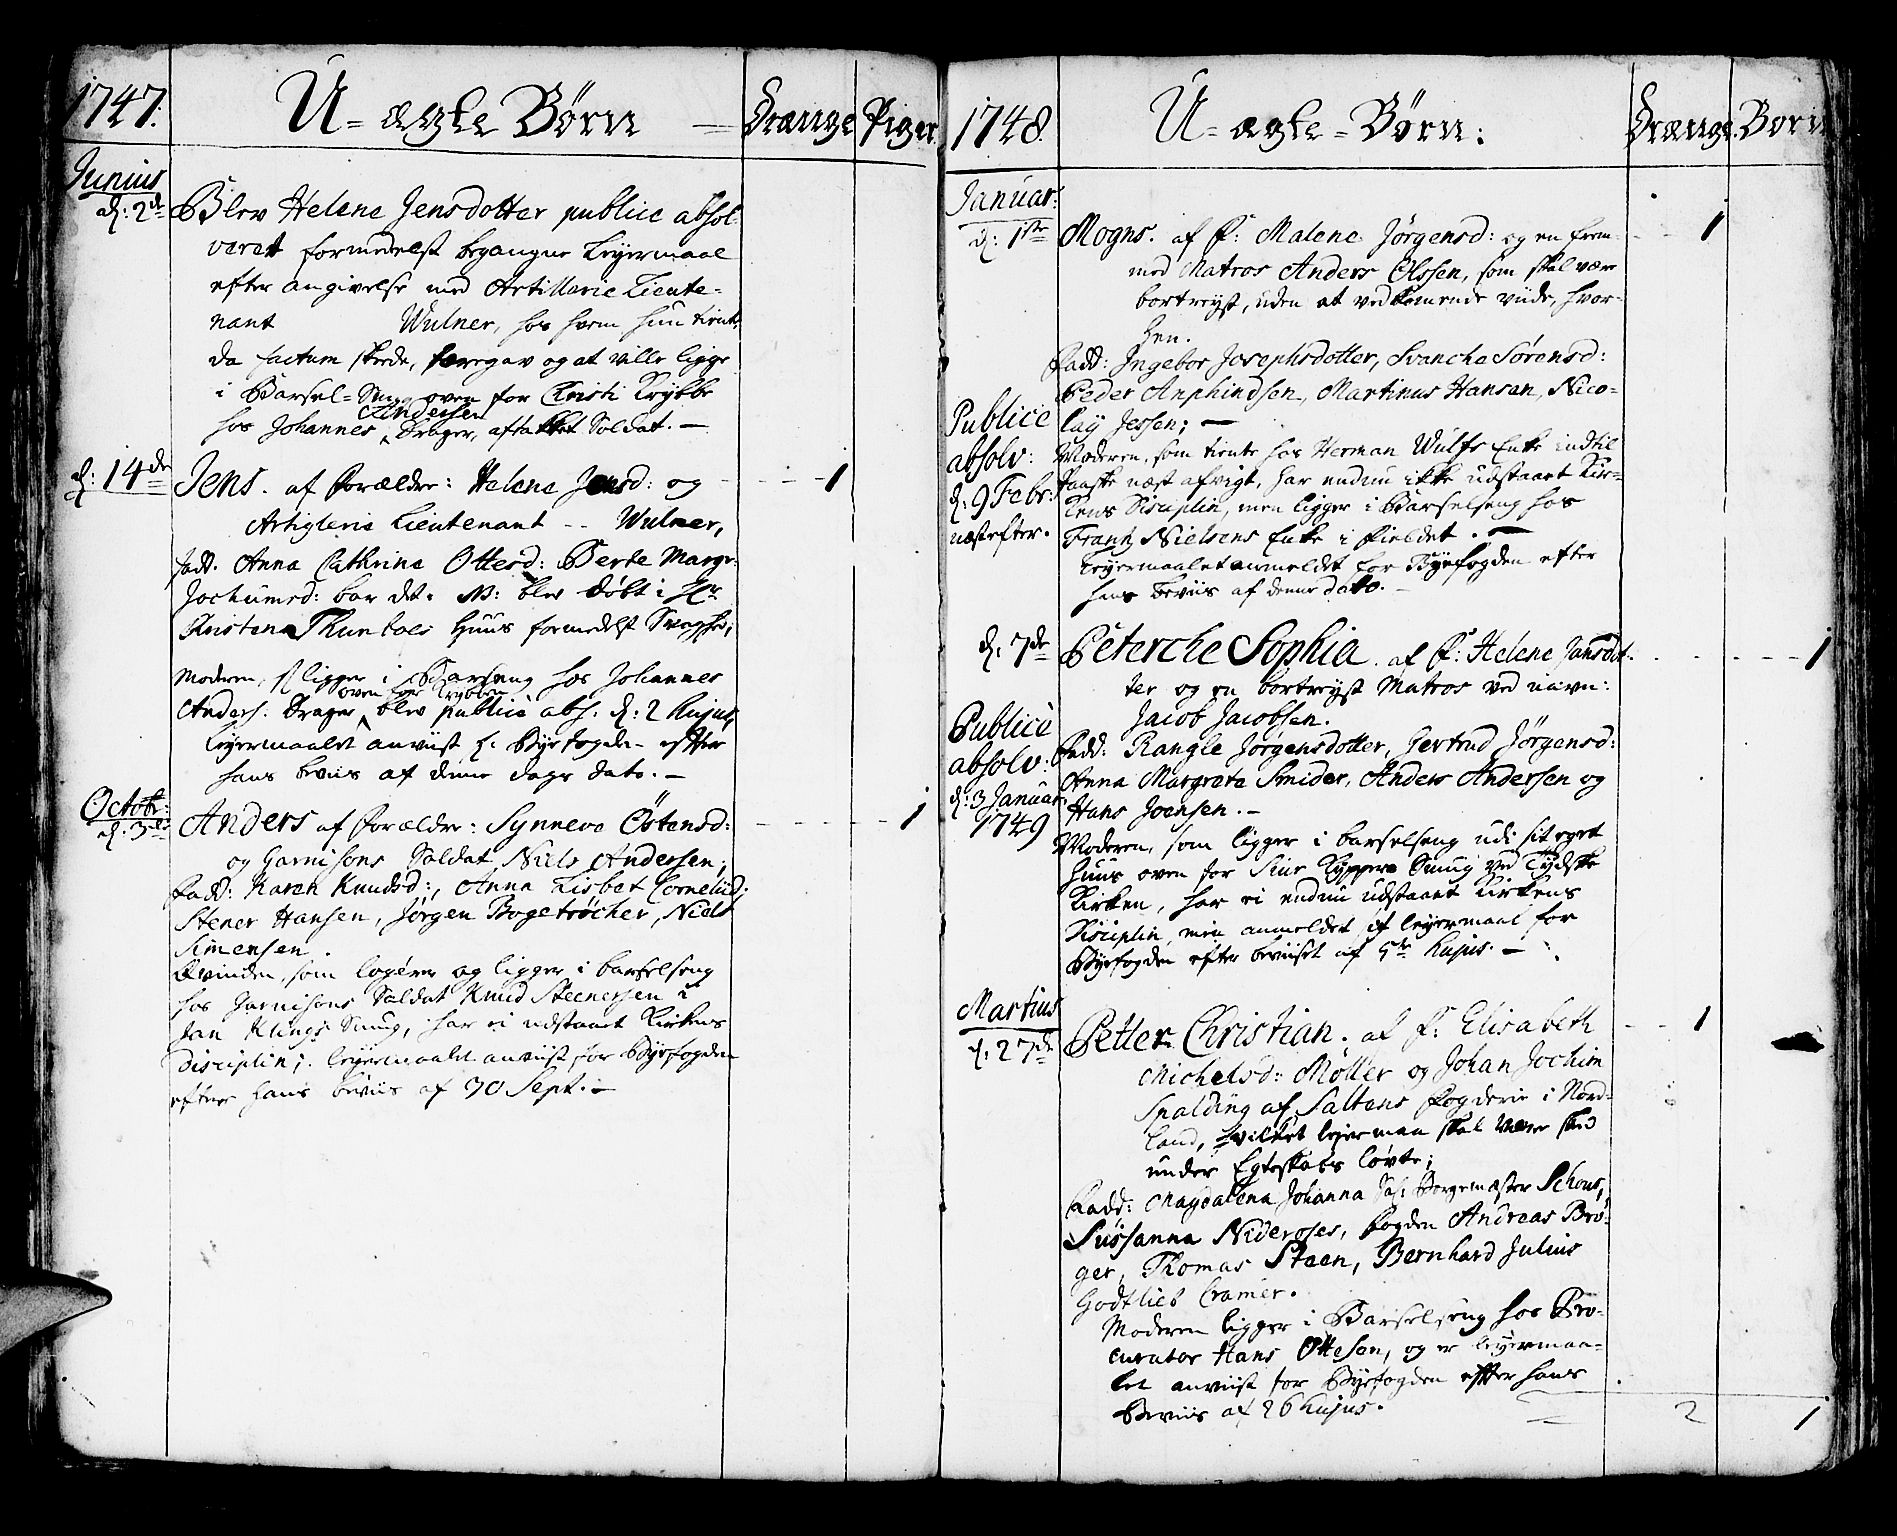 1747. U-ægte Børn Drænge Piger
Junius
d: 2de Blev Helene Jensdotter publice absol-
veret formedelst begangne Leyermaal
efter angivelse med Artillerie Lieute-
nant Wulner, hos hvem hun tient,
da factum skede, foregav og at ville ligge
i Barsel-Seng oven for Christi Krybbe
hos Johannes Andersen Drager, aftakket Soldat. —
d: 14de Jens. af Forældre: Helene Jensd: og 1
Artiglerie Lieutenant -- Wulner,
fadd. Anna Cathrina Ottesd: Berte Margr.
Jochumsd: bar det. N: blev døbt i Hr
Thunboes Huus formedelst Svaghed,
Moderen, ligger i Barselseng hos Johannes
Anders. Drager oven for Krybben blev publicè abs. d: 2 hujus,
Leyermaalet anviist f: Byefogden efter
hans beviis af denne dags dato. —
Octobr:
d: 3de Anders af Forældre: Synneve Östensd: 1
og Garnisons Soldat Niels Andersen;
Fadd: Karen Knudsd:, Anna Lisbet Cornelisd:
Stener Hansen, Jørgen Bogetrÿcher, Niels
Simensen.
Qvinden, som logérer og ligger i barselseng
hos Garnisons Soldat Knud Steenersen i
Jan Klings Smug, har ei udstaaet Kirkens
Disciplin; leyermaalet anviist for Byefogden
efter hans beviis af 30 Sept. —
1748. U-ægte-Børn: Drænge. Born
Januar:
d: 1ste Mogns. af F: Malene Jørgensd: og en frem- 1
med Matros Anders Olssen, som skal være
bortreyst, uden at vedkommende viide, hvor-
hen.
Fadd: Ingebor Josephsdotter, Svancke Sørensd:
Peder Anphindsen, Martinus Hansen, Nico-
lay Jessen; —
Publice
absolv:
d: 9 Febr:
næstefter.
Moderen, som tiente hos Herman Wulfs Enke indtil
Paaske næst afvigt, har endnu ikke udstaaet Kir-
kens Disciplin, men ligger i Barselseng hos
Frantz Nielsens Enke i Fieldet. —
Leyermaalet anmeldet for Byefogden efter
hans beviis af denne dato. —
d: 7de Peterche Sophia. af F: Helene Jansdot- 1
ter og en bortreyst Matros ved navn:
Jacob Jacobsen.
Publicè
absolv:
d: 3 Januar
1749
Fadd: Rangle Jørgensdotter, Gertrud Jørgensd:
Anna Margrete Smider, Anders Andersen og
Hans Joensen. —
Moderen, som ligger i barselseng udi sit eget
huus oven for Siur Kyppers Smug ved Tydske
Kirken, har ei endnu udstaaet Kirkens
Disciplin, men anmeldet sit leyermaal for
Byefogden efter beviiset af 5te hujus. —
Martius
d: 27de Petter Christian. af F: Elisabeth 1
Michelsd: Møller og Johan Jochim
Spalding af Saltens Fogderie i Nord-
land, hvilket leyermaal skal være sked
under Egteskabs løvte;
Fadd: Magdalena Johanna Sal: Borgemæster Schous,
Sussanna Nideroses, Fogden Andreas Brø-
ger, Thomas Steen, Bernhard Julius
Godtlieb Cramer.
Moderen ligger i Barselseng hos Pro-
curator Hans Ottesen, og er leyermaa-
let anviist for Byefogden efter hans
Beviis af 26 hujus.
2 1